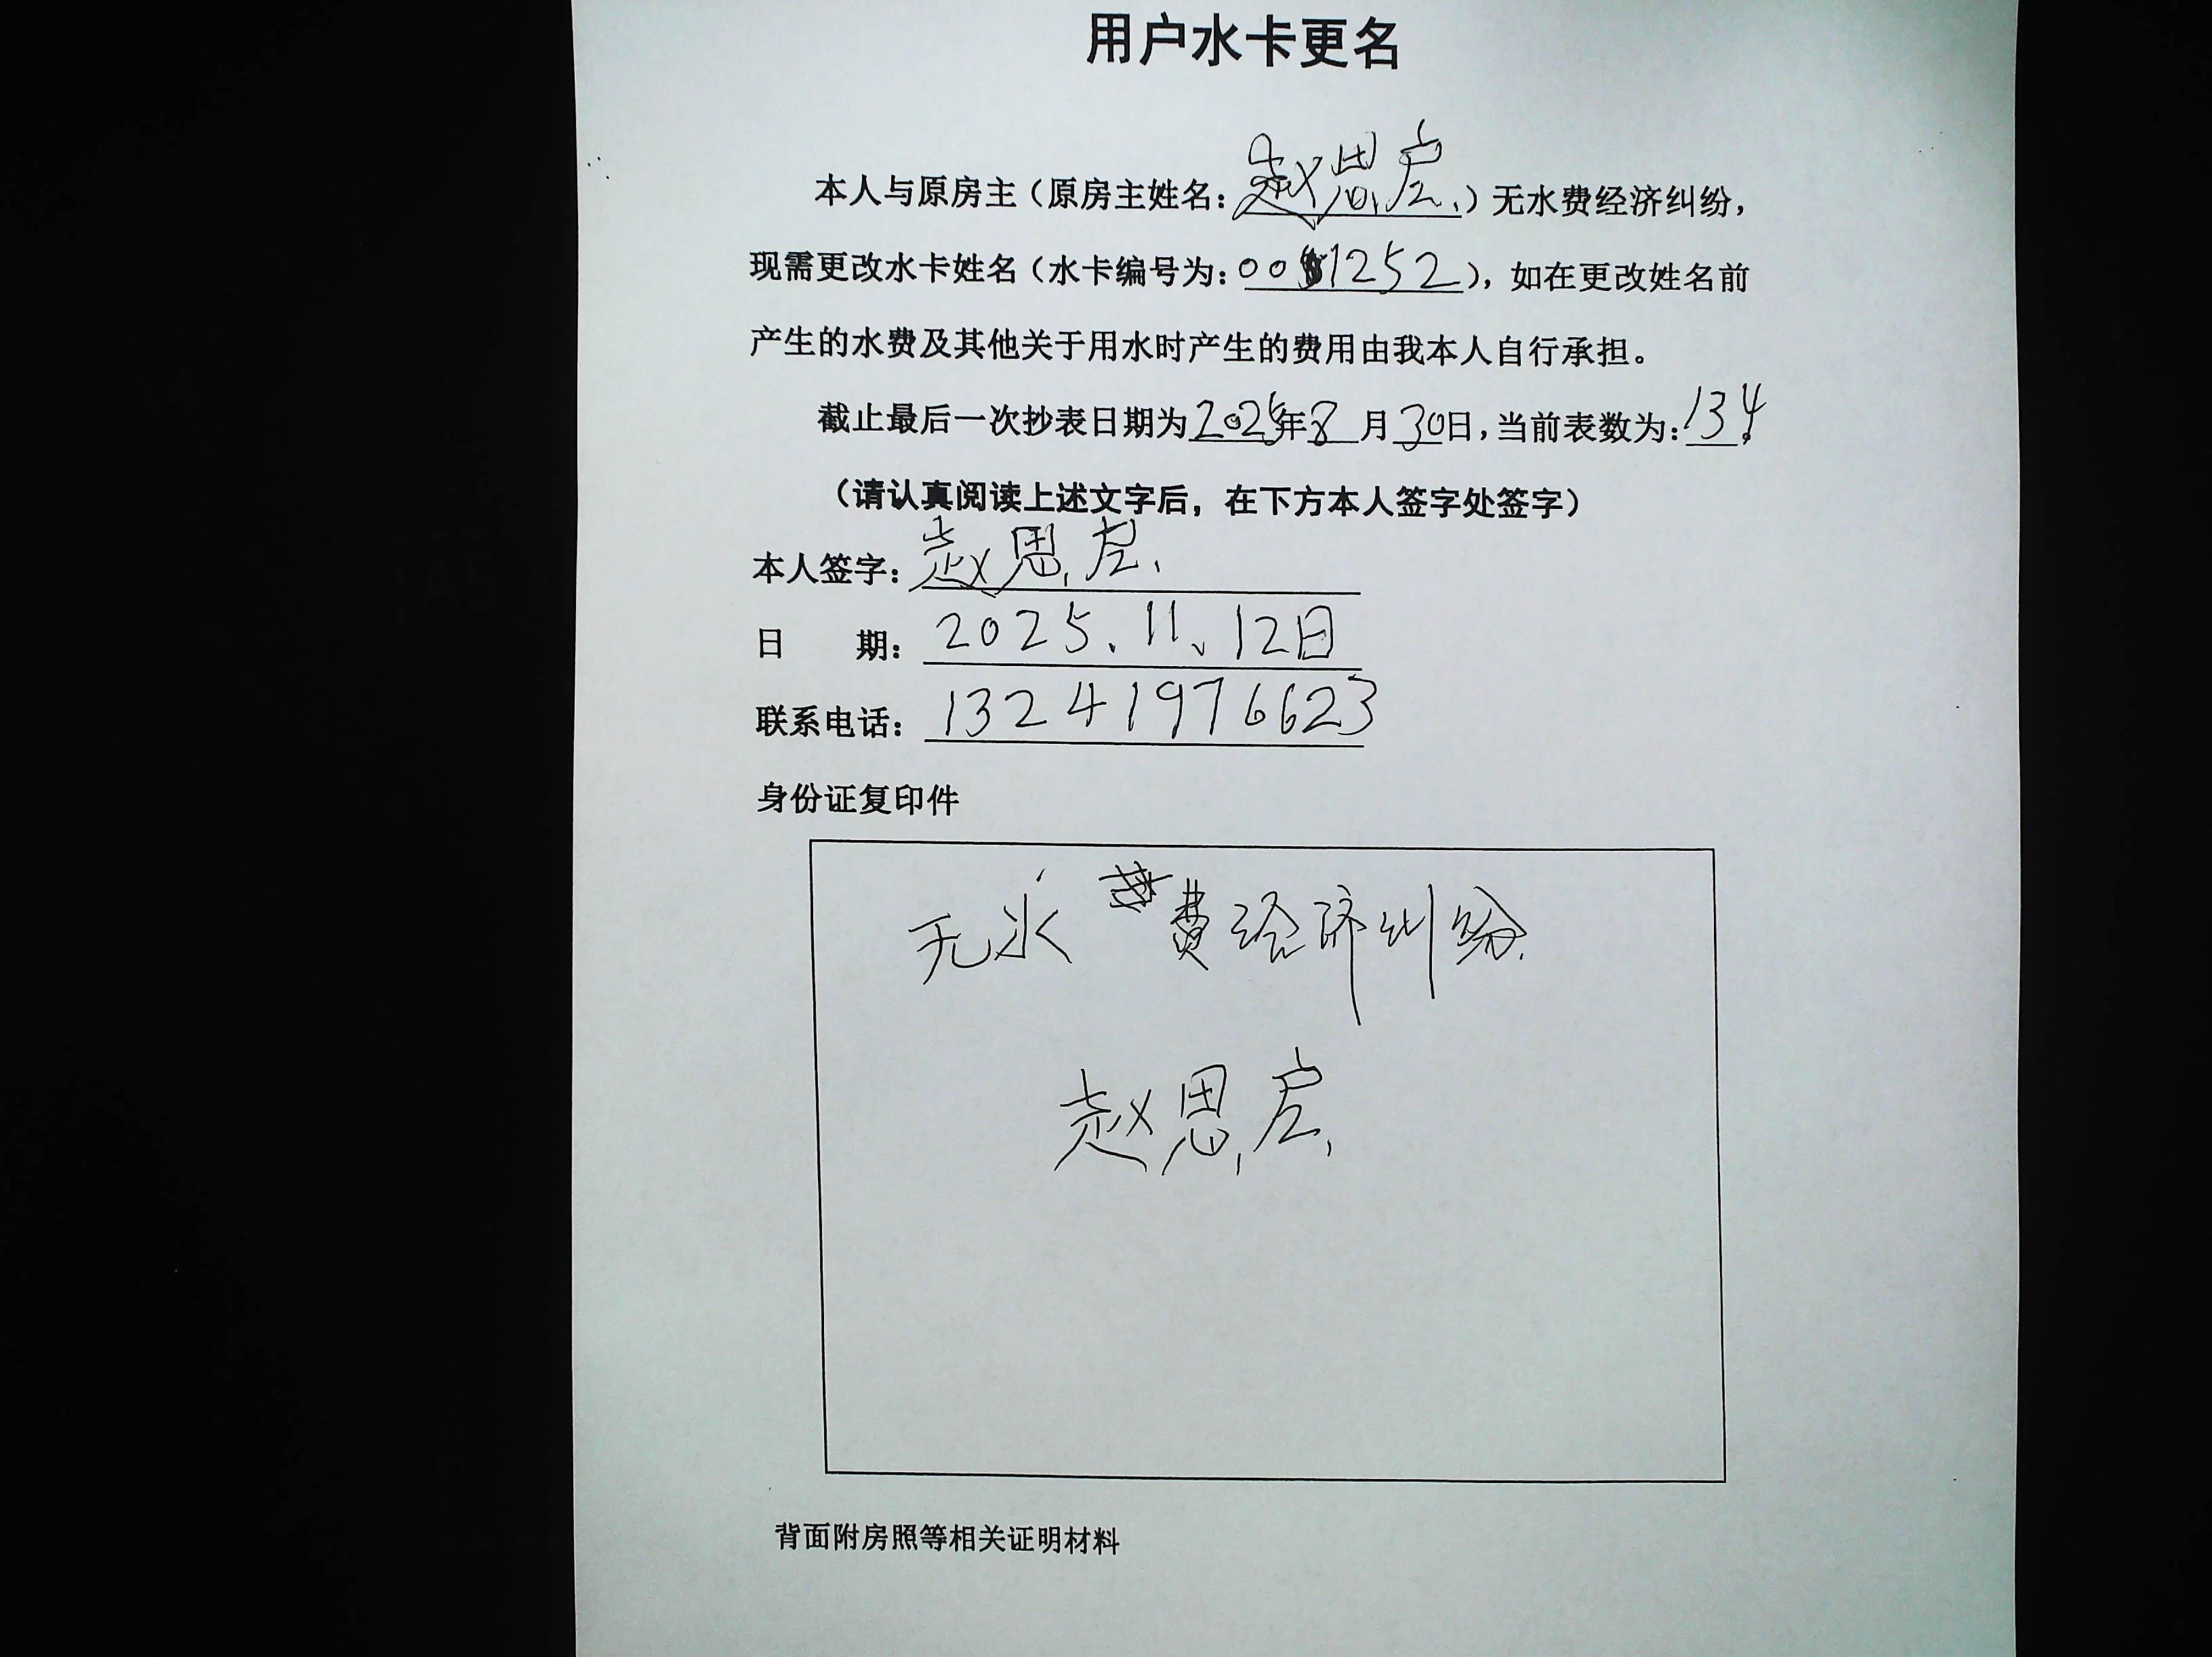 用户水卡更名
本人与原房主（原房主姓名：赵思）无水费经济纠纷，
现需更改水卡姓名（水卡编号为：001252），如在更改姓名前
产生的水费及其他关于用水时产生的费用由我本人自行承担。
截止最后一次抄表日期为2025年8月30日，当前表数为：134。
（请认真阅读上述文字后，在下方本人签字处签字）
本人签字：赵思
日 期：2025.11、12日
联系电话：13241976623
身份证复印件
无水费经济纠纷.
赵思
背面附房照等相关证明材料